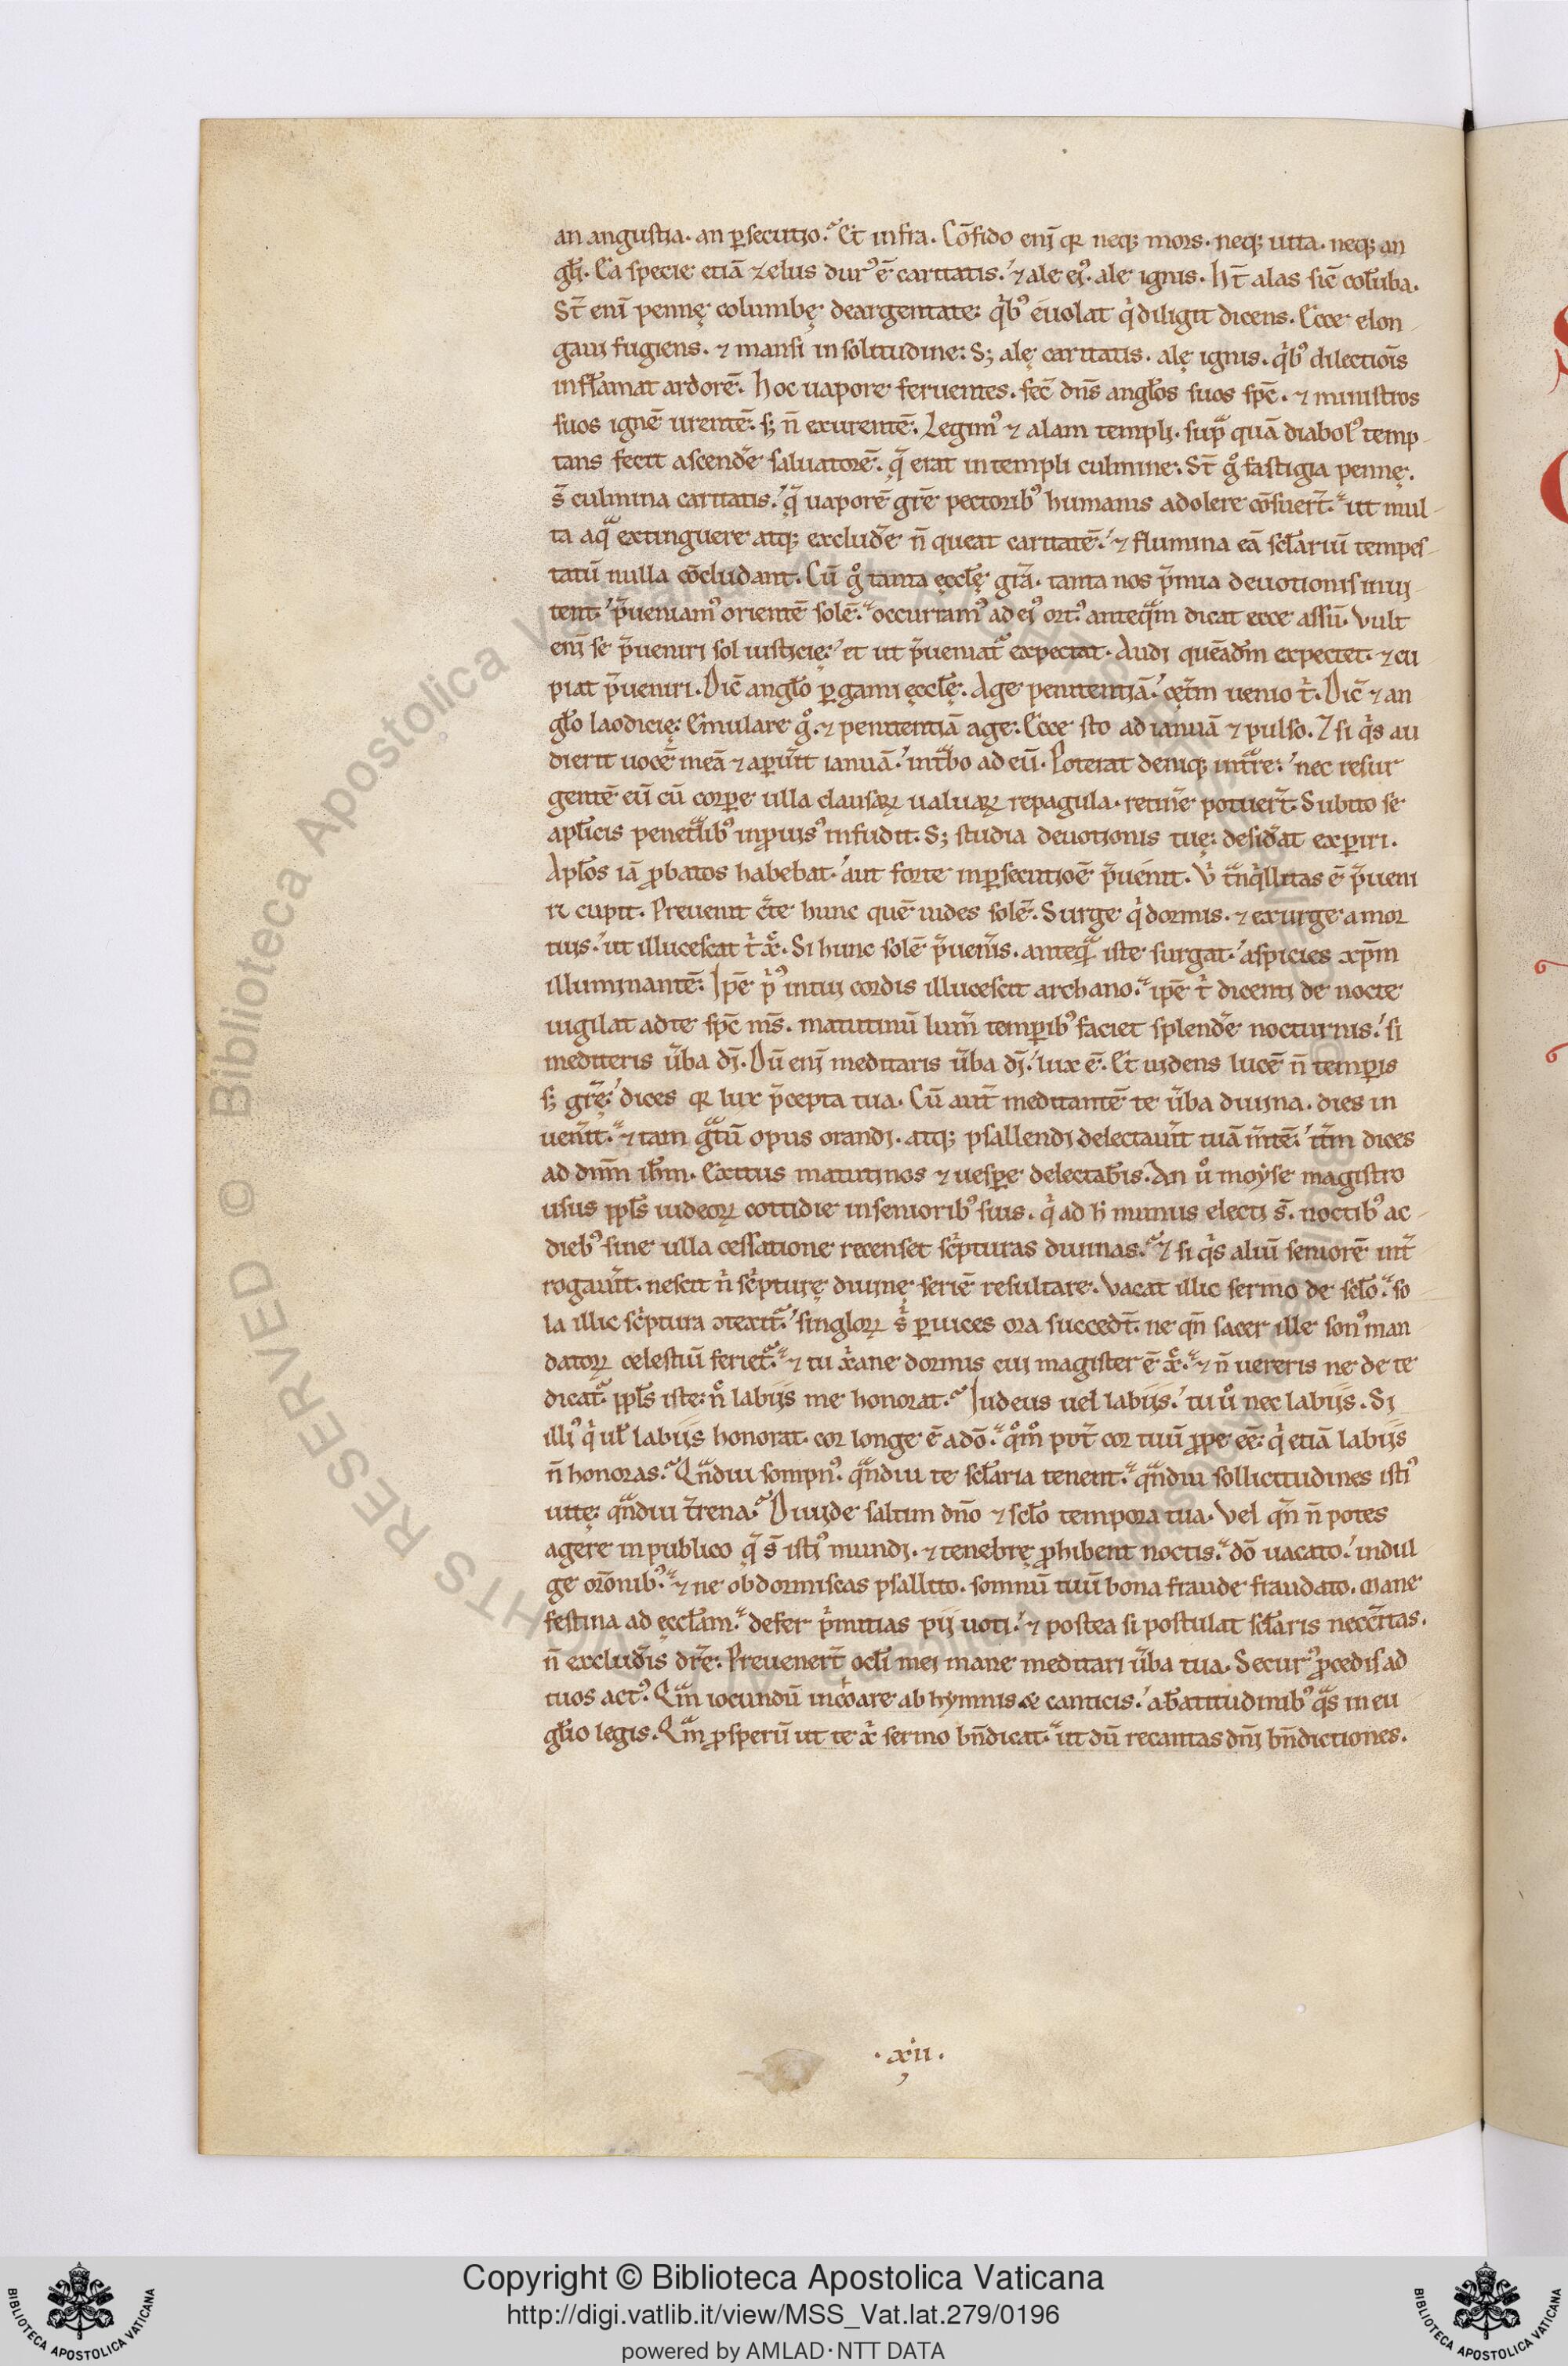 an angustia. an ꝑsecutio.? Et infra. Cōfido eni ꝙ neq; mors. neq; uita. neq; an
głi. Ea specie etiā zelus durꝰ ē caritatis. ⁊ ale eiꝰ. ale ignis. Ht̄ alas sic̄ colūba.
St̄ enī pennę columbę deargentate: qͥbꝰ euolat qͥ diligit dicens. Ecce elon
gaui fugiens. ⁊ mansi in solitudine: S; alę caritatis. alę ignis. qͥbꝰ dilectiōis
inflāmat ardorē. Hoc uapore feruentes. fec̄ dn̄s angłos suos spc̄. ⁊ ministros
suos ignē urentē. s; n̄ exurentē. Legimꝰ ⁊ alam templi. supᷓ quā diabolꝰ temp
tans fecit ascendẽ saluatorē. qᷓ erat in templi culmine: St̄ gͦ fastigia pennę.
s̄ culmina caritatis. qᷓ uaporē grē pectoribꝰ humanis adolere cōsuert̄. ut mul
ta aqᷓ extinguere atq; excludẽ n̄ queat caritatē. ⁊ flumina eā scłariū tempes
tatū nulla cōcludant. Cū gͦ tanta ęccłę grā. tanta nos p̄mia deuotionis inui
tent. p̄ueniamꝰ orientē solē. occurramꝰ ad eiꝰ ortꝰ anteqᷓm dicat ecce assū. Vult
eni se p̄ueniri sol iusticię: et ut p̄ueniatᷣ expectat. Audi quēadm̄ expectet. ⁊ cu
piat p̄ueniri. Dic̄ angło ꝑgami ęccłę. Age penitentiā. cęt̄m uenio tͥ. Dic̄ ⁊ an
gło laodicię: Emulare gͦ. ⁊ penitentiā age: Ecce sto ad ianuā ⁊ pulso. ⁊ si qͥs au
dierit uocē meā ⁊ aꝑuit̄ ianuā. intᷓbo ad eū. Poterat deniq; intᷓre: nec resur
gentē eū cū corꝑe ulla clausaꝝ ualuaꝝ repagula. retinẽ potuert̄. Subito se
apłicis penetᷓlibꝰ inꝓuisꝰ infudit. S; studia deuotionis tuę: desid̄at exꝑiri.
Apłos iā ꝓbatos habebat. aut forte in ꝑsecutiōe p̄uenit. Vͥ tᷓnqͥllitas ē p̄ueni
ri cupit. Preuenit c̄te hunc quē uides solē. Surge qͥ dormis. ⁊ exurge a mor
tuis. ut illucescat tͥ xͦ. Si hunc solē p̄uen̄is. anteqᷓ iste surgat. aspicies xp̄m
illuminantē. Ip̄e pͥꝰ in tui cordis illucescit archano. ip̄e tͥ dicenti de nocte
uigilat ad te spc̄ ms̄. matutinū lum̄ temꝑibꝰ faciet splendẽ nocturnis. si
mediteris ūba dī. Dū eni meditaris ūba dī. lux ē. Et uidens lucē n̄ temꝑis
s; grę̄. dices ꝙ lux p̄cepta tua. Cū aut̄ meditantē te ūba diuina. dies in
uen̄it. ⁊ tam gᷓtū opus orandi. atq; psallendi delectauit̄ tuā m̄tē. it̄m dices
ad dnm̄ ihm̄. Exitus matutinos ⁊ uesꝑe delectab̄is. An uͦ moyse magistro
usus ppłs iudeoꝝ cottidie in senioribꝰ suis. qͥ ad h̄ munus electi s̄. noctibꝰ ac
diebꝰ sine ulla cessatione recenset scͥpturas diuinas.? ⁊ si qͥs aliū seniorē int̄
rogauit̄. nescit nͥ scͥpturę diuinę seriē resultare. Vacat illic sermo de scło. so
la illic scͥptura ꝯtexitᷣ. singloꝝ sͥ ꝑ uices ora succedt̄. ne qn̄ sacer ille sonꝰ man
datoꝝ celestiū ferietᷣ. ⁊ tu xͥane dormis cui magister ē xͦ. ⁊ n̄ uereris ne de te
dicatᷣ. ppłs iste: nͦ labiis me honorat.? Iudeus uel labiis. tu uͦ nec labiis. Si
illiꝰ qͥ uł labiis honorat. cor longe ē a dō. qͦmͦ pot̄ cor tuū ꝓpe eē. qͥ etiā labiis
n̄ honoras.? Qᷓndiu sompnꝰ. qᷓndiu te scłaria tenent. qᷓndiu sollicitudines istiꝰ
uitę: qᷓndiu t̄rena.? Diuide saltim dn̄o ⁊ scło tempora tua. Vel qn̄ n̄ potes
agere in publico qᷓ s̄ istiꝰ mundi. ⁊ tenebrę ꝓhibent noctis. dō uacato. indul
ge orōnibꝰ. ⁊ ne obdormiscas psallito. somnū tuū bona fraude fraudato. Mane
festina ad ęccłam. defer pͥmitias pii uoti. ⁊ postea si postulat scłaris neceīitas.
n̄ excludis̄ dr̄e: Preuenert̄ ocłi mei mane meditari ūba tua. Securꝰ ꝓcedis ad
tuos actꝰ. Qᷓm iocundū incͦoare ab hymnis & canticis. a b̄atitudinibꝰ qᷓs in eu
głio legis. Qᷓm ꝓsperū ut te xͥ sermo bn̄dicat. ut dū recantas dn̄i bn̄dictiones.
. xii .
Copyright © Biblioteca Apostolica Vaticana
http://digi.vatlib.it/view/MSS_Vat.lat.279/0196
powered by AMLAD·NTT DATA